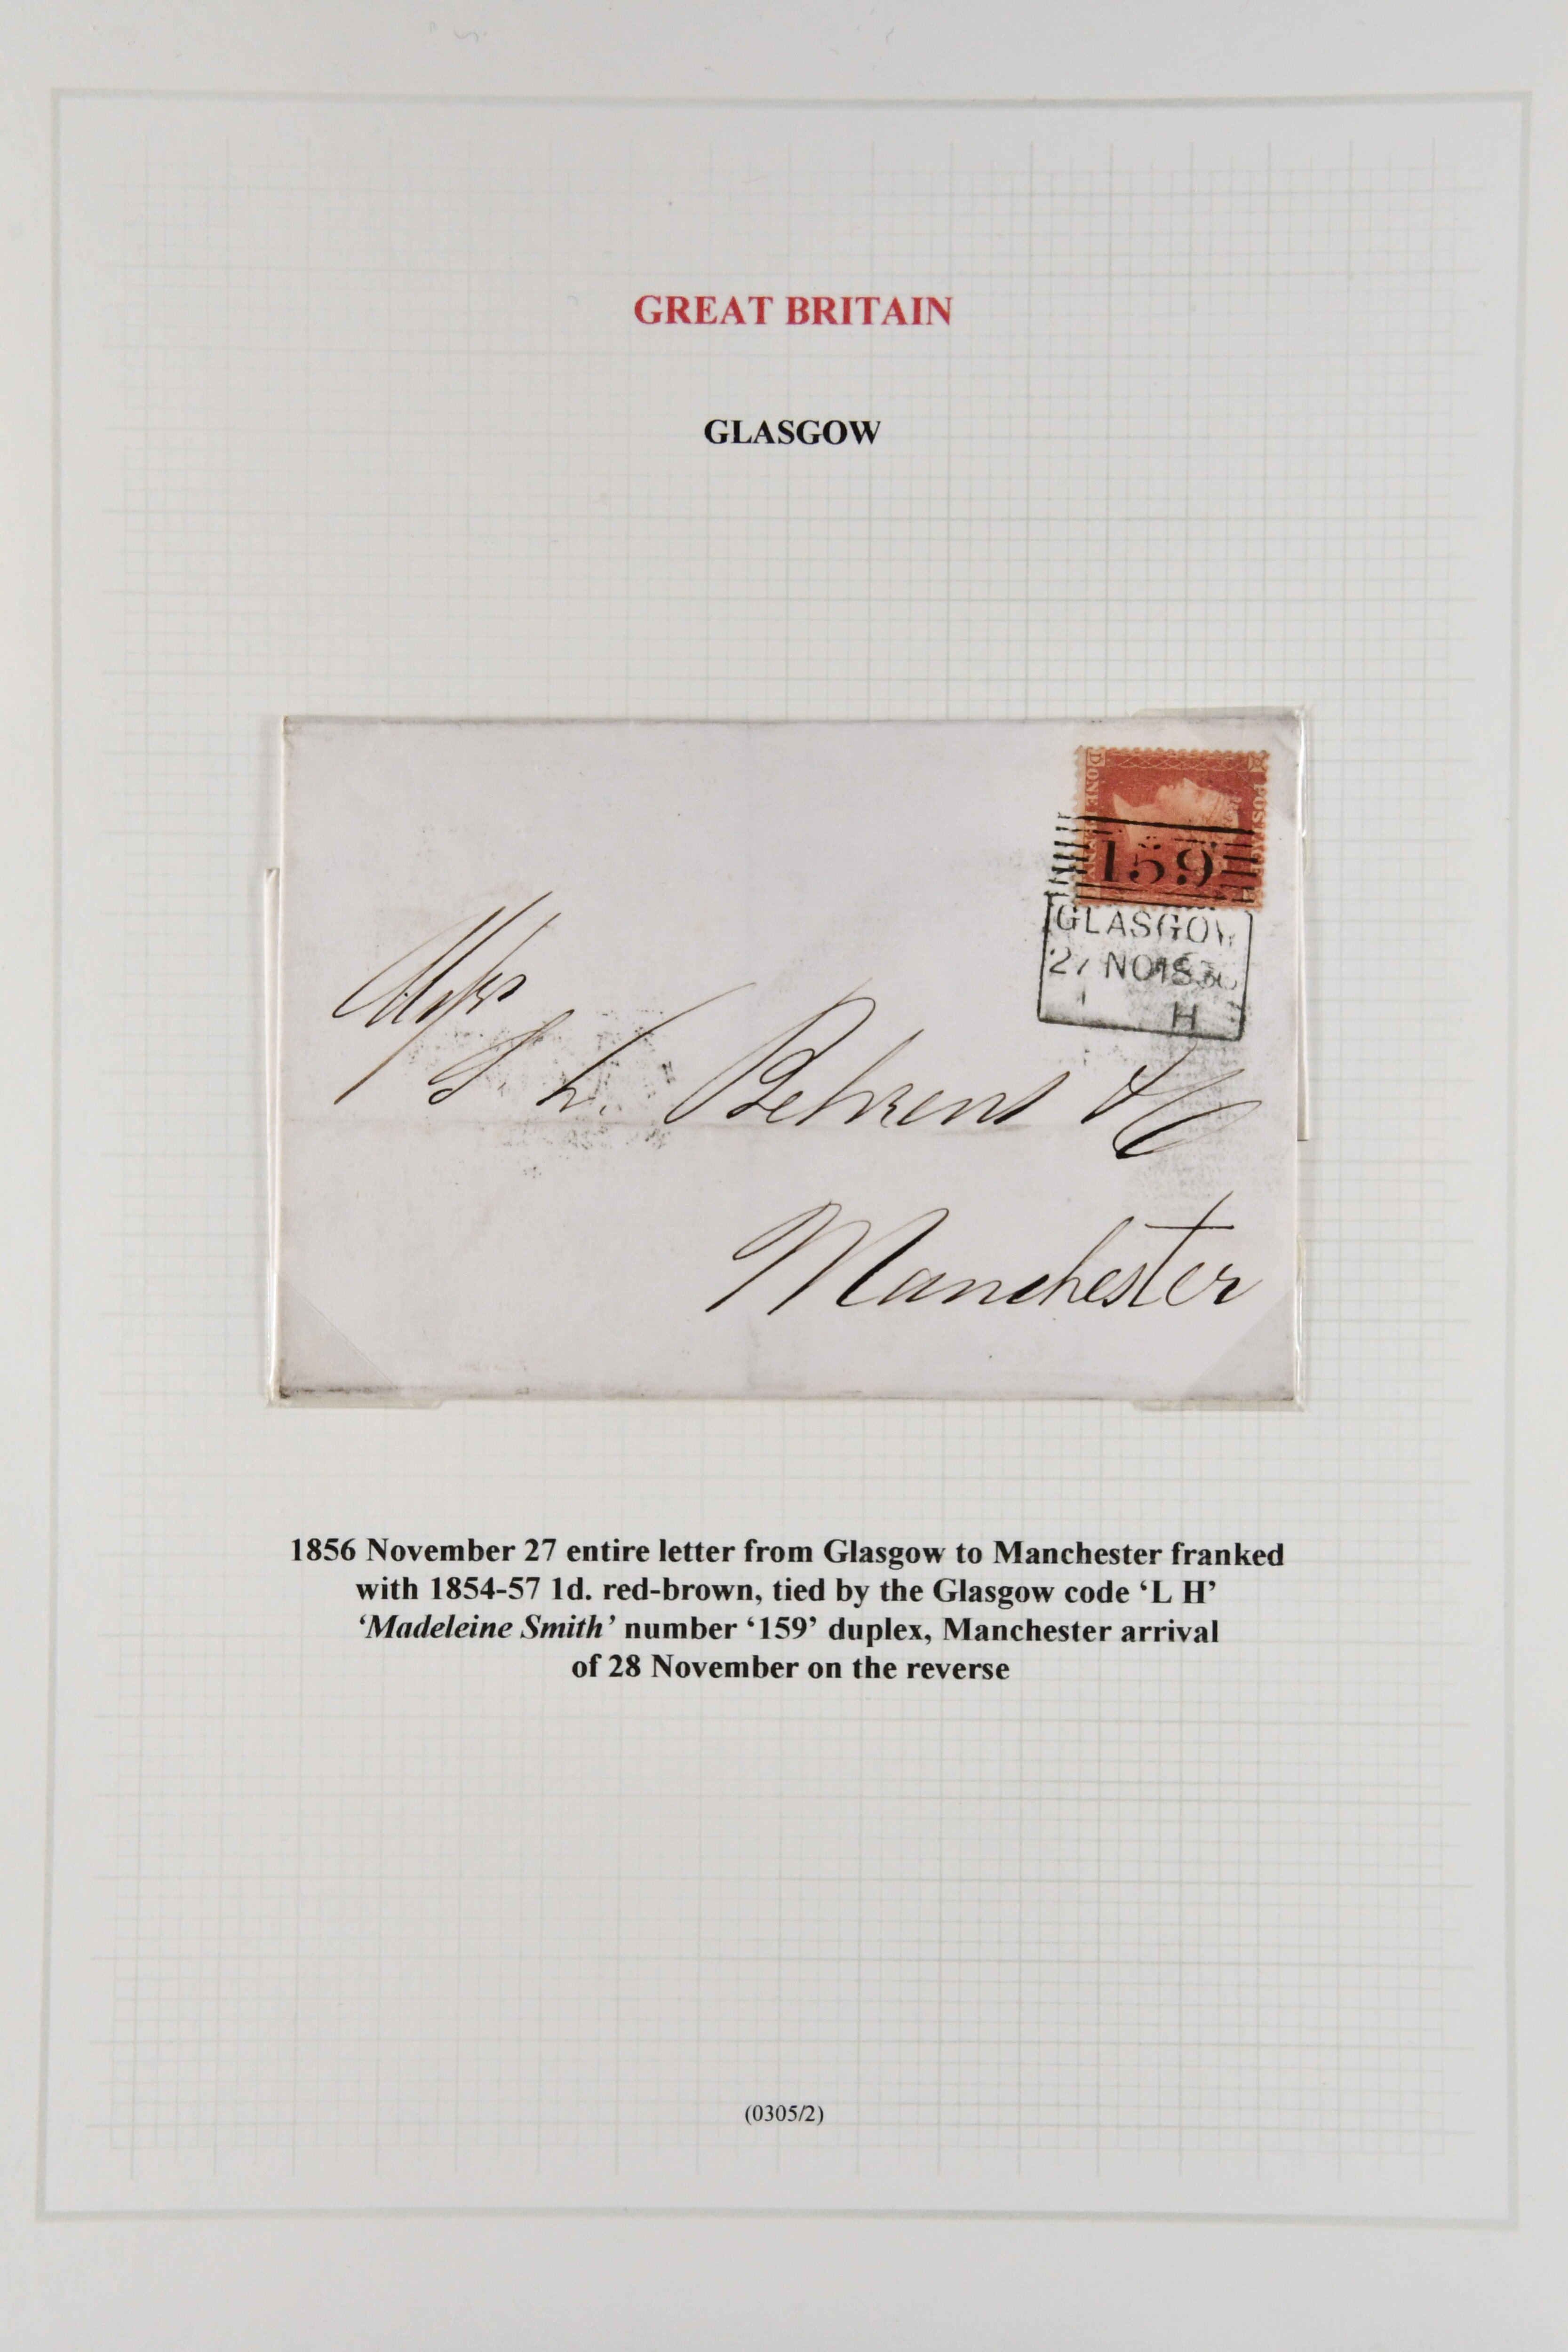 GREAT BRITAIN
GLASGOW
159
GLASGOW
27 NO 1856
H
Messrs
S. L. Behrens & Co
Manchester
1856 November 27 entire letter from Glasgow to Manchester franked
with 1854-57 1d. red-brown, tied by the Glasgow code ‘L H’
‘Madeleine Smith’ number ‘159’ duplex, Manchester arrival
of 28 November on the reverse
(0305/2)